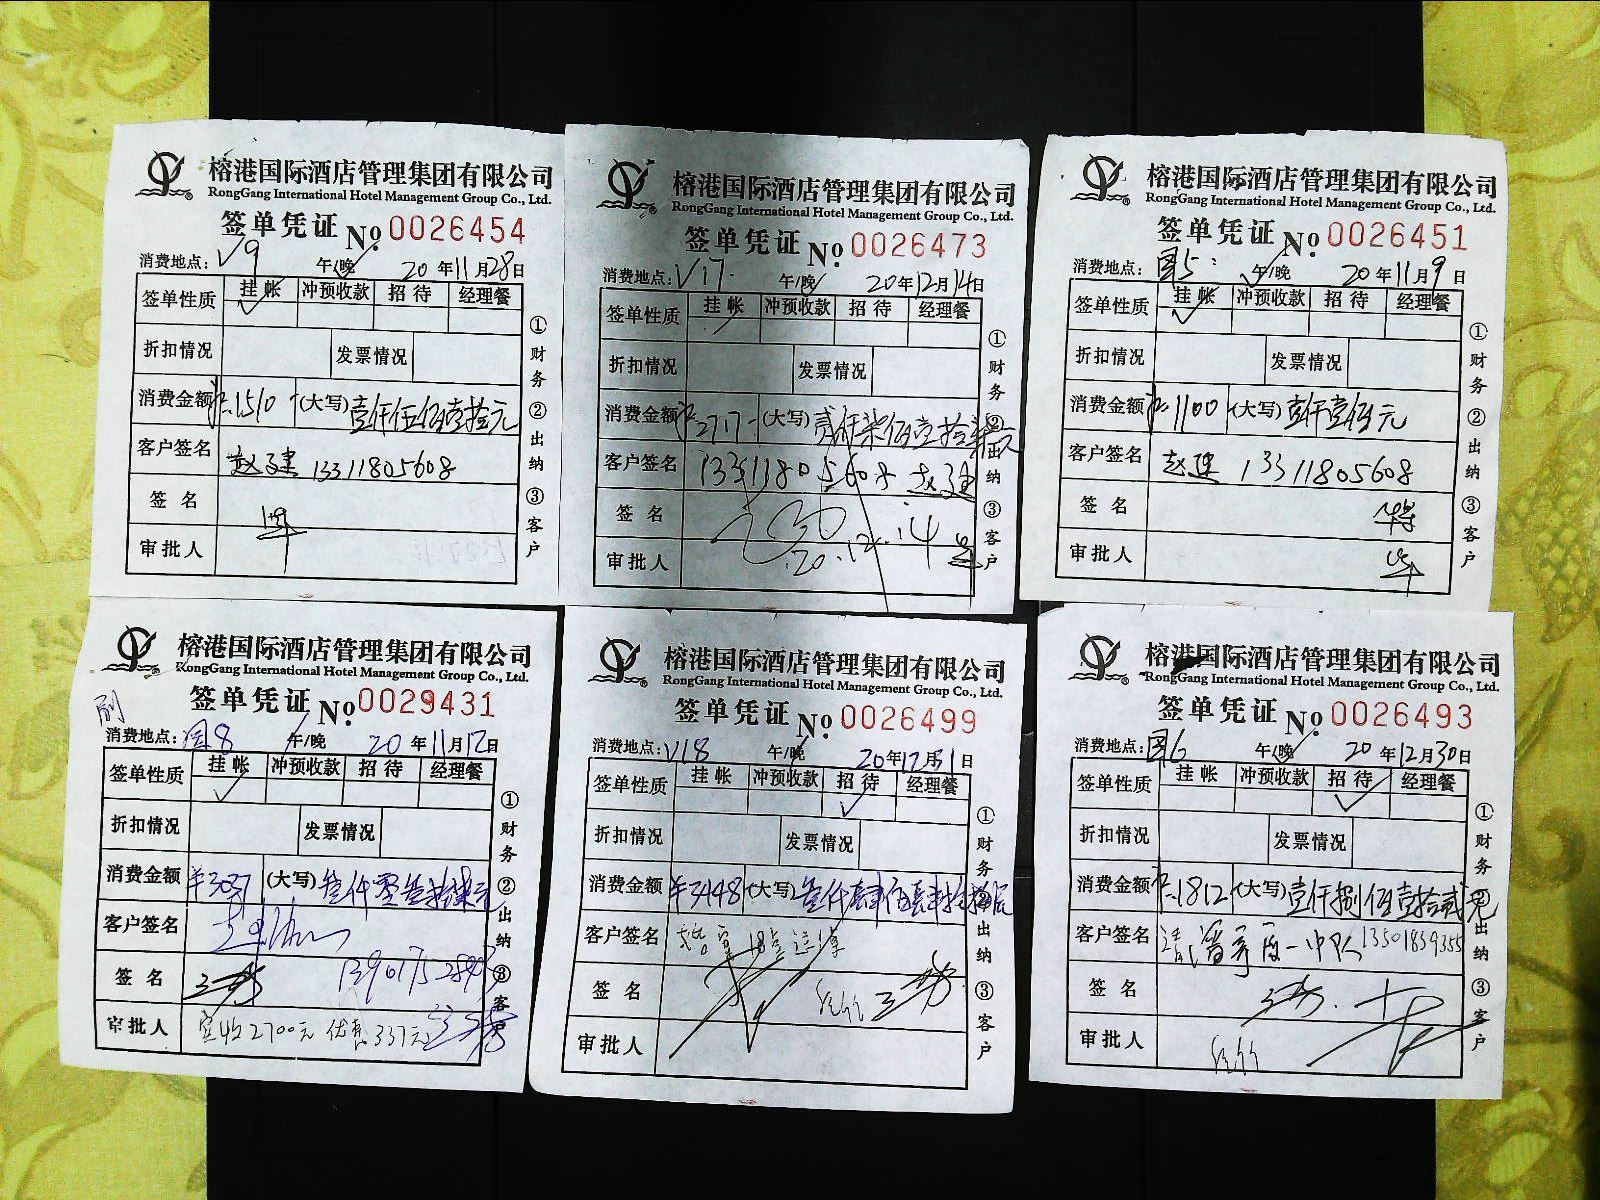 榕港国际酒店管理集团有限公司
RongGang International Hotel Management Group Co., Ltd.
签单凭证 No. 0026454
消费地点: V9 午/晚 20年11月28日
签单性质 挂帐 冲预收款 招待 经理餐
折扣情况 发票情况
消费金额 1510 (大写) 壹仟伍佰壹拾元
客户签名 赵建 13311805608
签名
审批人
①财务 ②出纳 ③客户
榕港国际酒店管理集团有限公司
RongGang International Hotel Management Group Co., Ltd.
签单凭证 No. 0026473
消费地点: V17. 午/晚 20年12月14日
签单性质 挂帐 冲预收款 招待 经理餐
折扣情况 发票情况
消费金额 2717 (大写) 贰仟柒佰壹拾柒元
客户签名 13311805608 赵建
签名
审批人 20.12.14
①财务 ②出纳 ③客户
榕港国际酒店管理集团有限公司
RongGang International Hotel Management Group Co., Ltd.
签单凭证 No. 0026451
消费地点: 国5 午/晚 20年11月9日
签单性质 挂帐 冲预收款 招待 经理餐
折扣情况 发票情况
消费金额 1100 (大写) 壹仟壹佰元
客户签名 赵建 13311805608
签名
审批人
①财务 ②出纳 ③客户
榕港国际酒店管理集团有限公司
RongGang International Hotel Management Group Co., Ltd.
签单凭证 No. 0029431
消费地点: 国8 午/晚 20年11月12日
签单性质 挂帐 冲预收款 招待 经理餐
折扣情况 发票情况
消费金额 ¥3037 (大写)
客户签名
签名
审批人 实收2700元 优惠337元
①财务 ②出纳 ③客户
榕港国际酒店管理集团有限公司
RongGang International Hotel Management Group Co., Ltd.
签单凭证 No. 0026499
消费地点: V18 午/晚 20年12月31日
签单性质 挂帐 冲预收款 招待 经理餐
折扣情况 发票情况
消费金额 ¥3448 (大写)
客户签名
签名
审批人
①财务 ②出纳 ③客户
榕港国际酒店管理集团有限公司
RongGang International Hotel Management Group Co., Ltd.
签单凭证 No. 0026493
消费地点: 国6 午/晚 20年12月30日
签单性质 挂帐 冲预收款 招待 经理餐
折扣情况 发票情况
消费金额 1812 (大写) 壹仟捌佰壹拾贰元
客户签名 一中队 13501839355
签名
审批人
①财务 ②出纳 ③客户